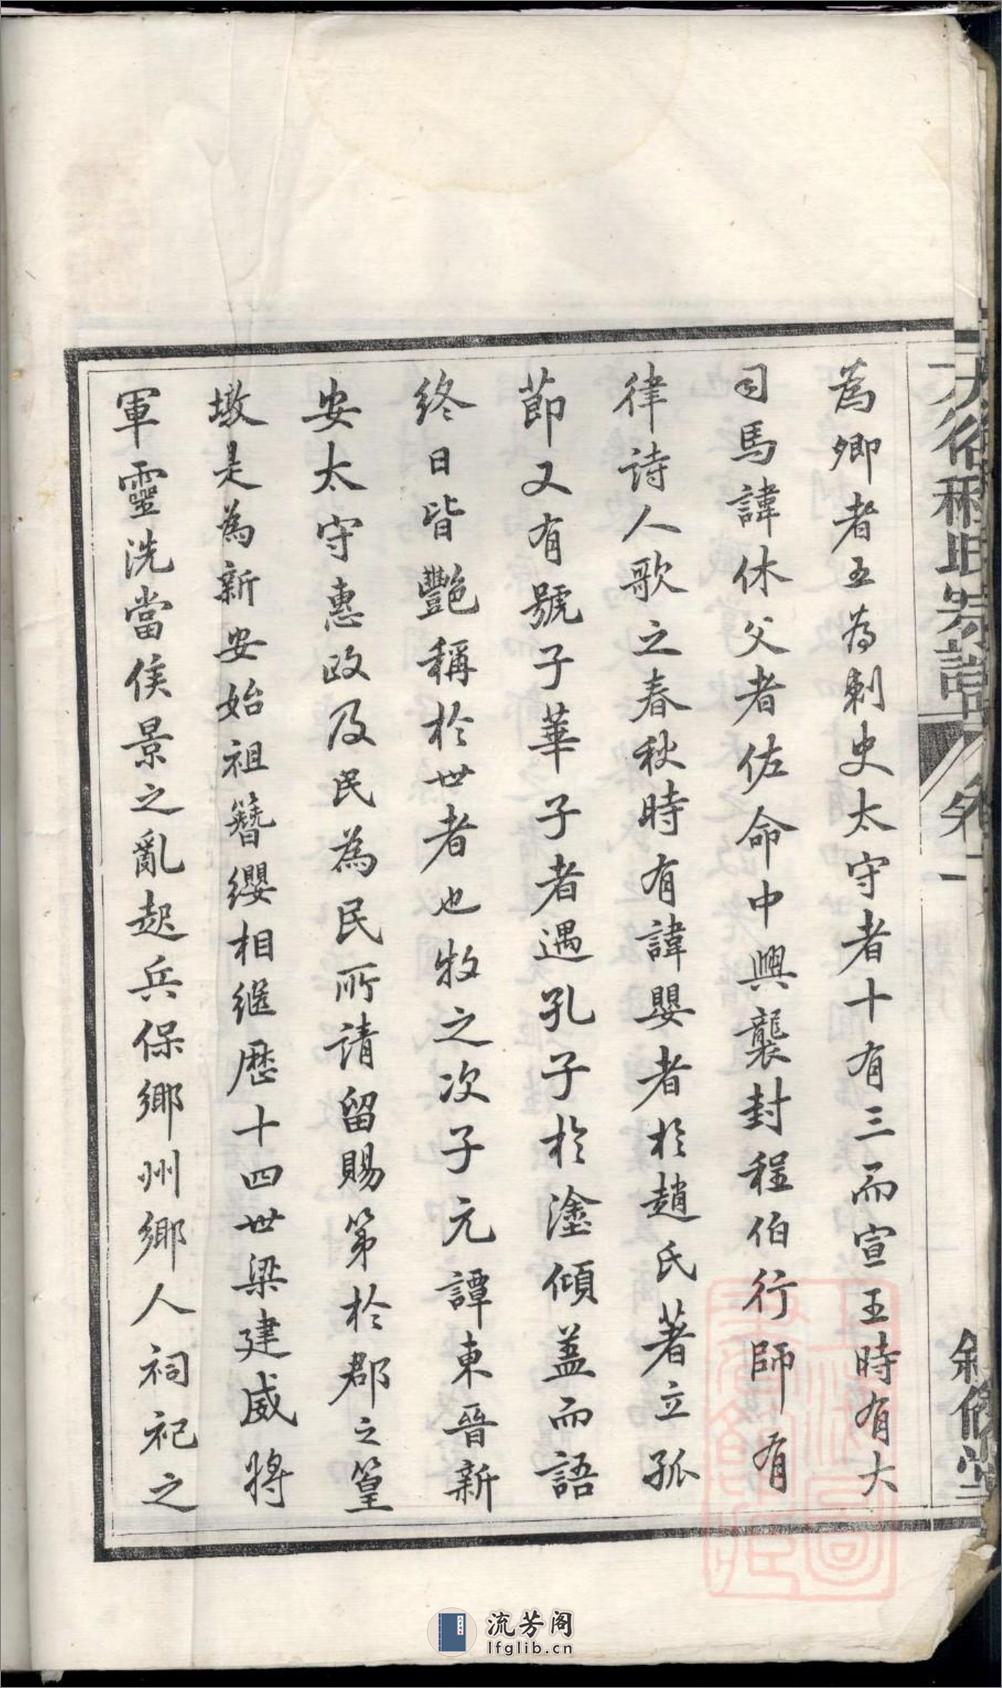 程氏宗譜
卷一
敘倫堂
為卿者五為刺史太守者十有三而宣王時有大
司馬諱休父者佐命中興襲封程伯行師有
律詩人歌之春秋時有諱嬰者於趙氏著立孤
節又有號子華子者遇孔子於塗傾蓋而語
終日皆艷稱於世者也牧之次子元譚東晉新
安太守惠政及民為民所請留賜第於郡之篁
墩是為新安始祖簪纓相繼歷十四世梁建威將
軍靈洗當侯景之亂起兵保鄉州鄉人祠祀之
流芳阁
lfglib.cn